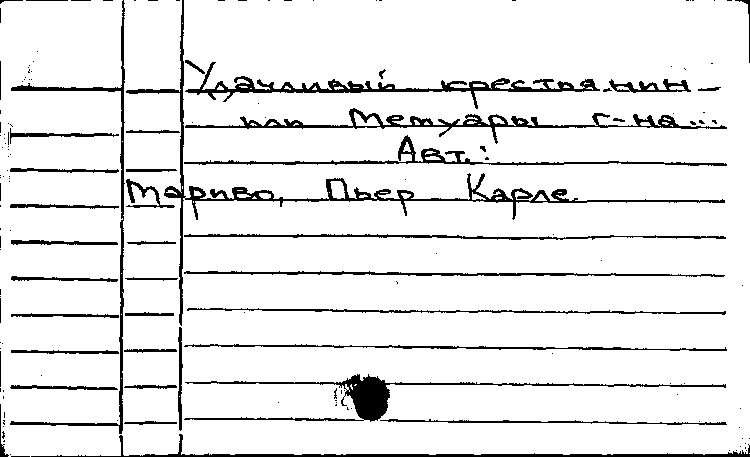 Удачливый крестьянин –
или Мемуары г-на...
Авт.:
Мариво, Пьер Карле.